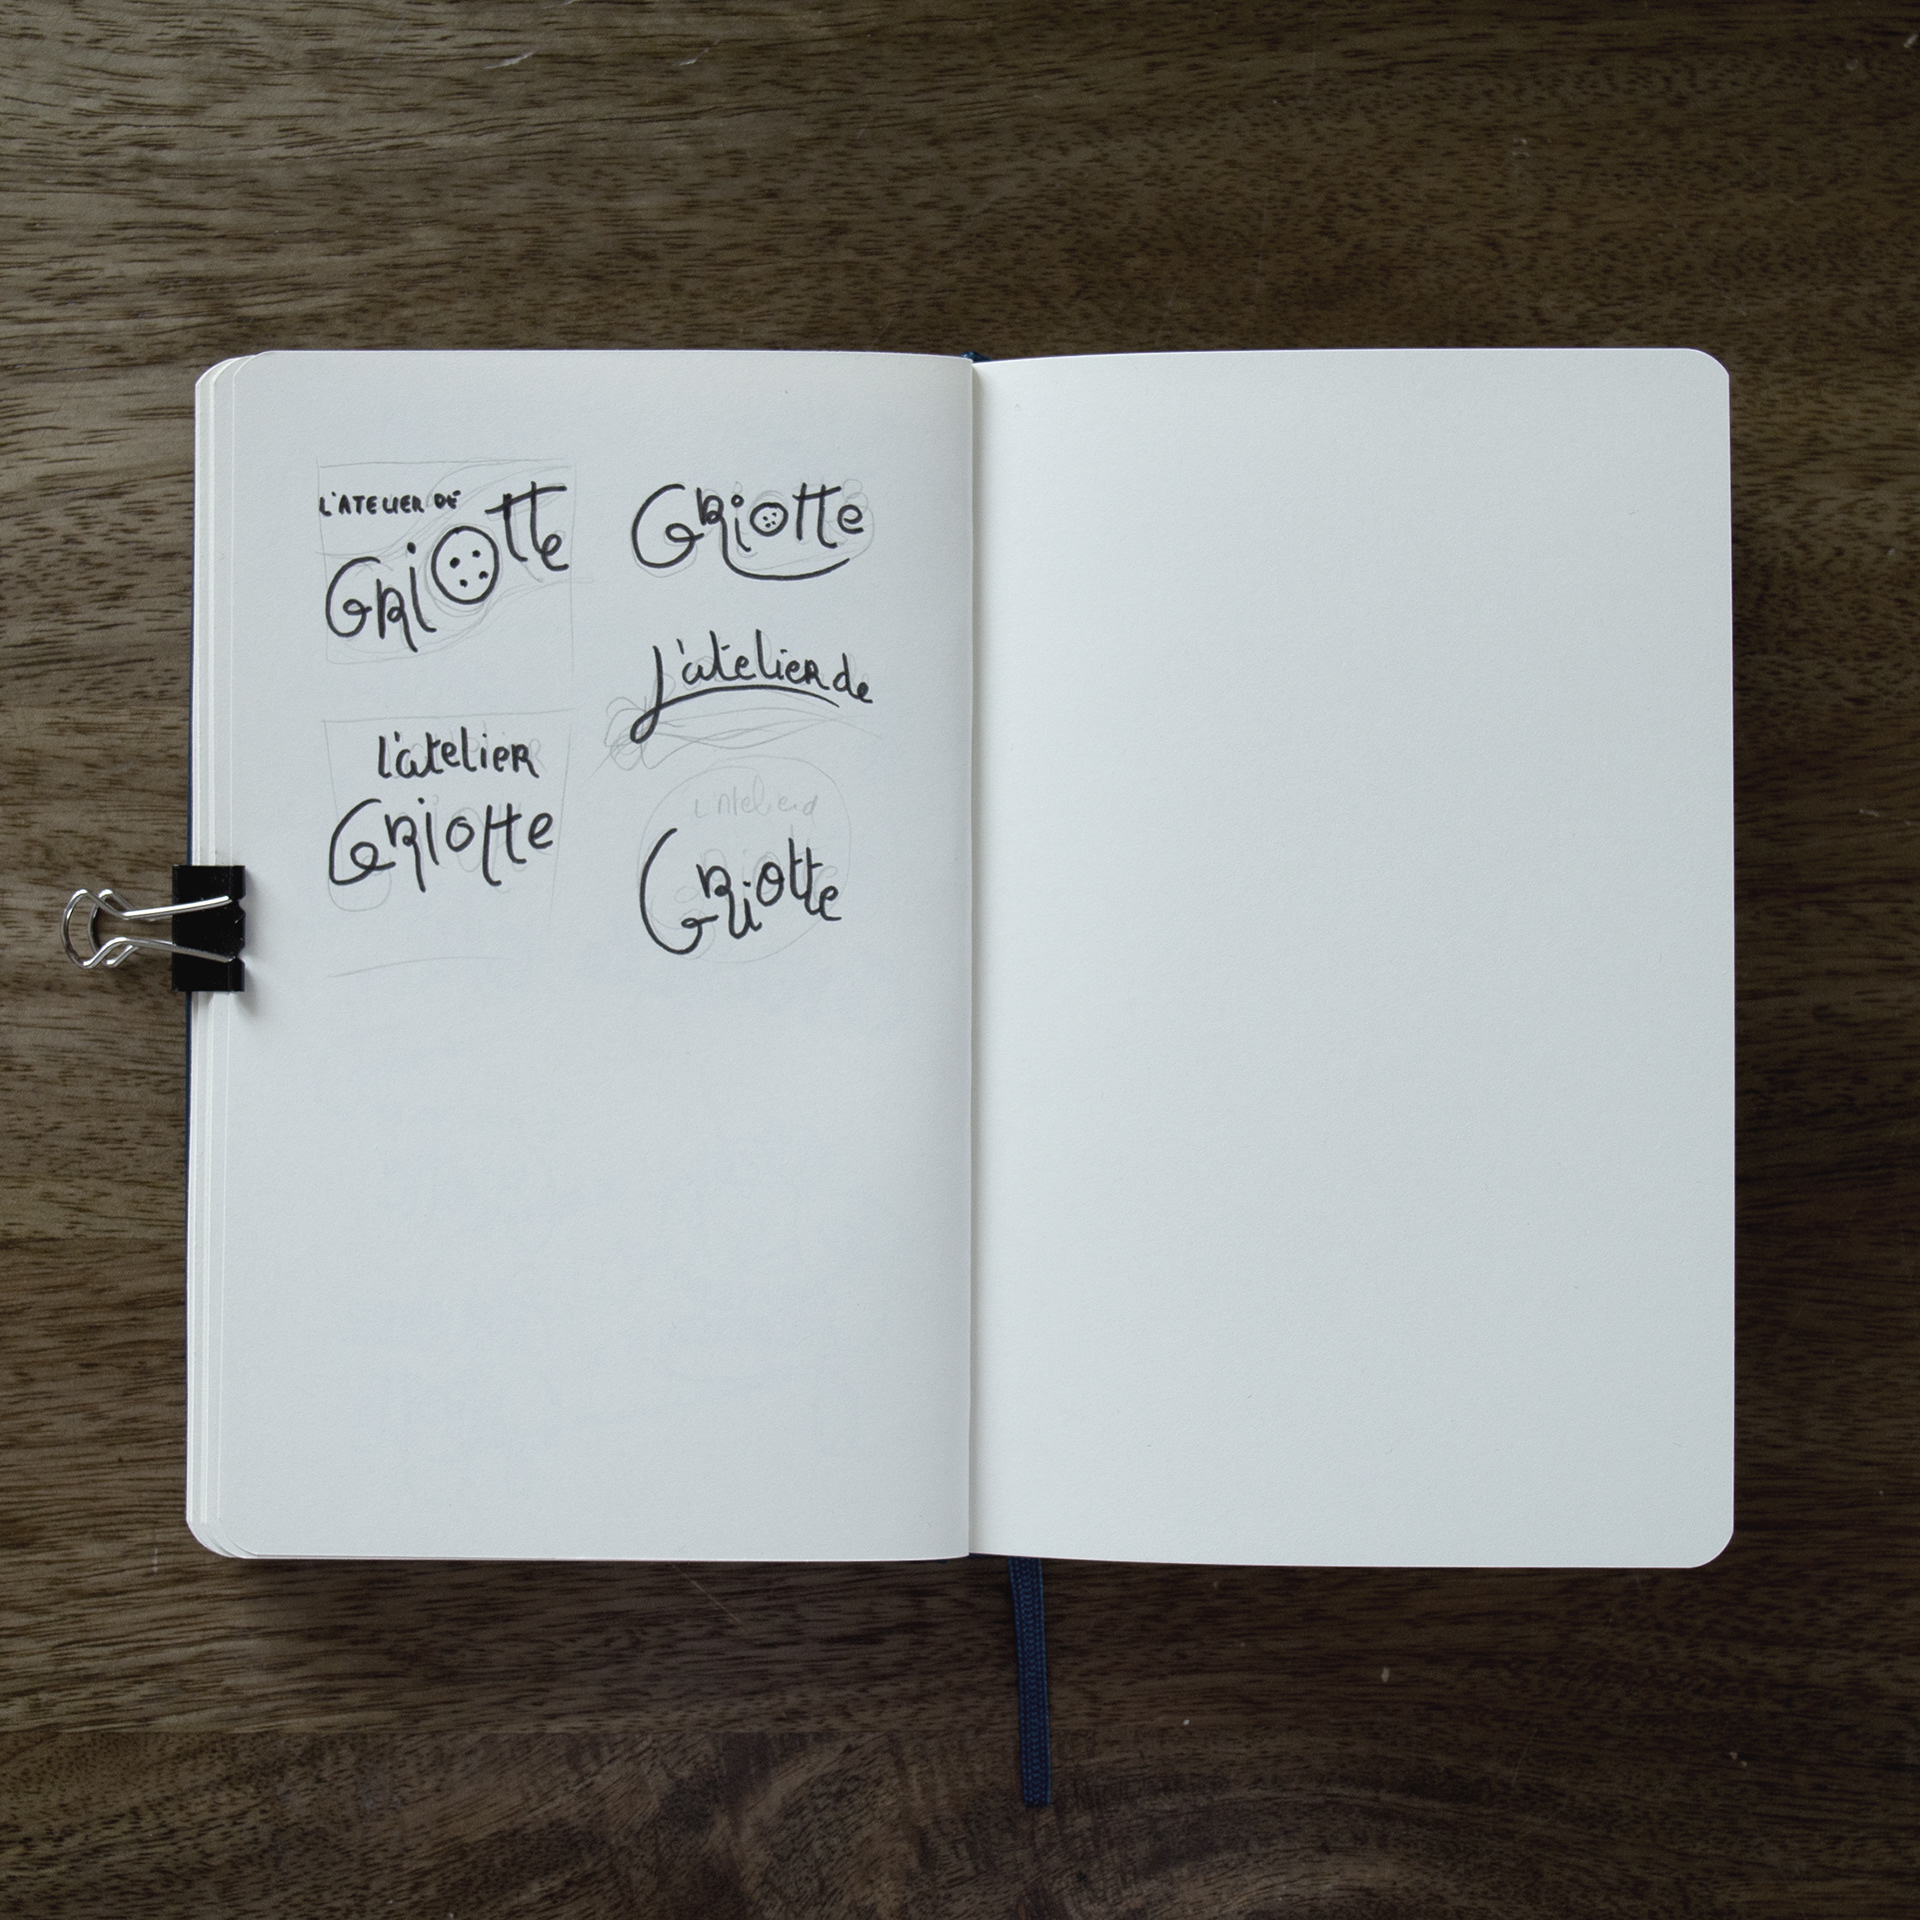 L'ATELIER DE
GRiOtte
l'atelier
GRiotte
GRiotte
L'atelier de
L'atelier d
GRiotte